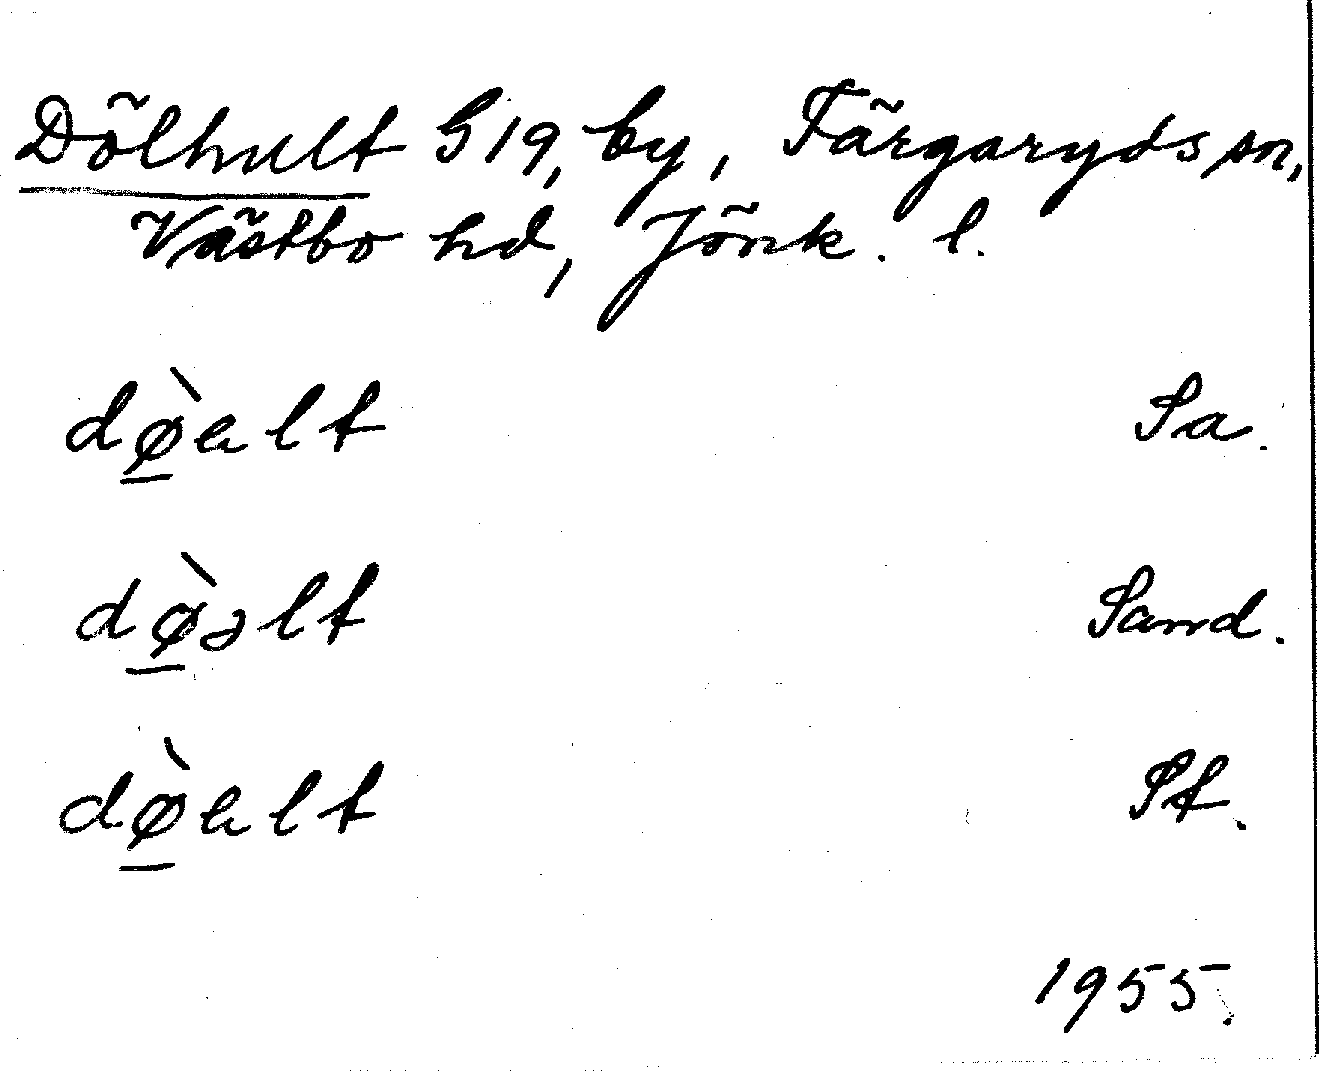 Dölhult G19, by, Färgaryds sn,
Västbo hd, Jönk. l.
dø̠̀alt Sa.
dø̠̀əlt Sand.
dø̠̀alt St.
1955.